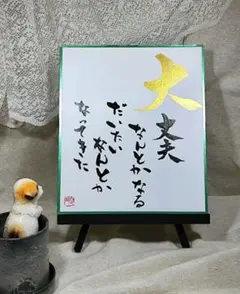 大丈夫
なんとかなる
だいたい
なんとか
なってきた